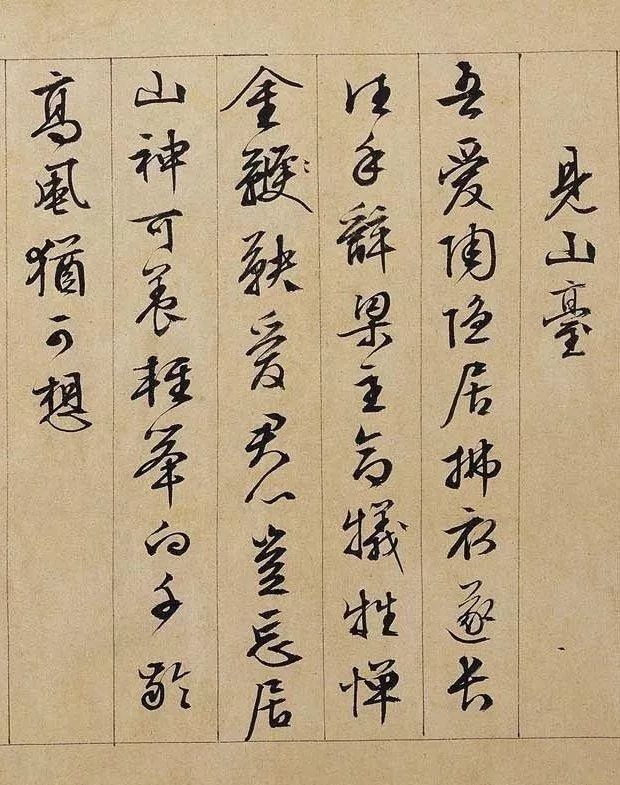 見山臺
吾愛陶隱居拂衣遂長
往手辭梁主命犧牲憚
金鞅愛君心豈忘居
山神可養輕舉向千齡
高風猶可想